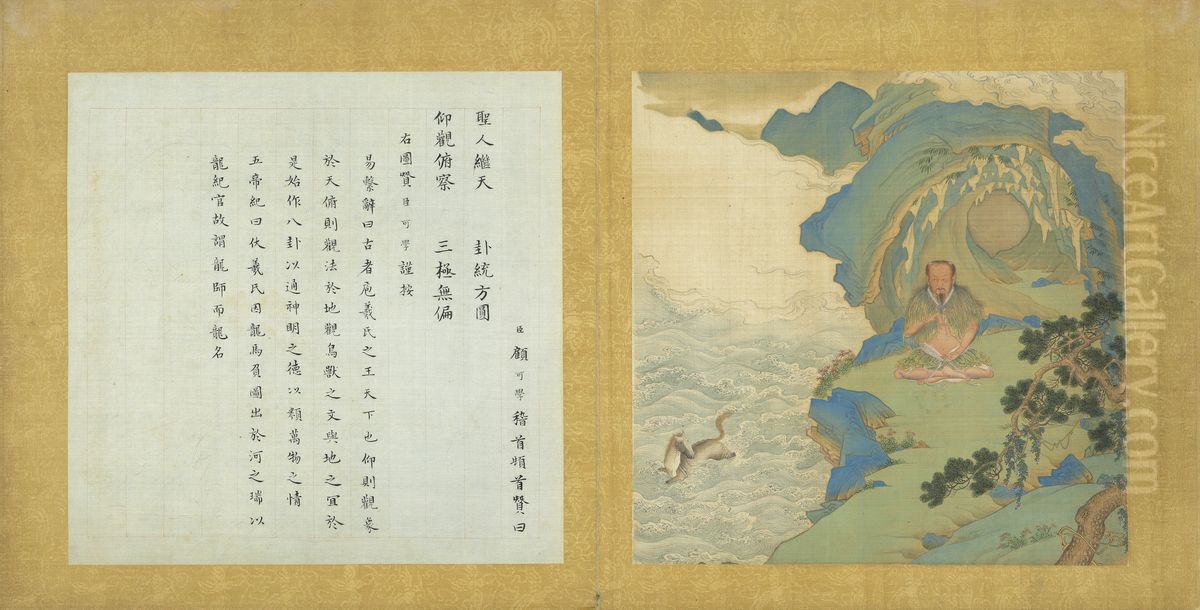 臣顧可學稽首頓首贊曰
聖人繼天 卦統方圓
仰觀俯察 三極無偏
右圖贊臣可學謹按
易繫辭曰古者庖羲氏之王天下也仰則觀象
於天俯則觀法於地觀鳥獸之文與地之宜於
是始作八卦以通神明之德以類萬物之情
五帝紀曰伏羲氏因龍馬負圖出於河之瑞以
龍紀官故謂龍師而龍名
NiceArtGallery.com